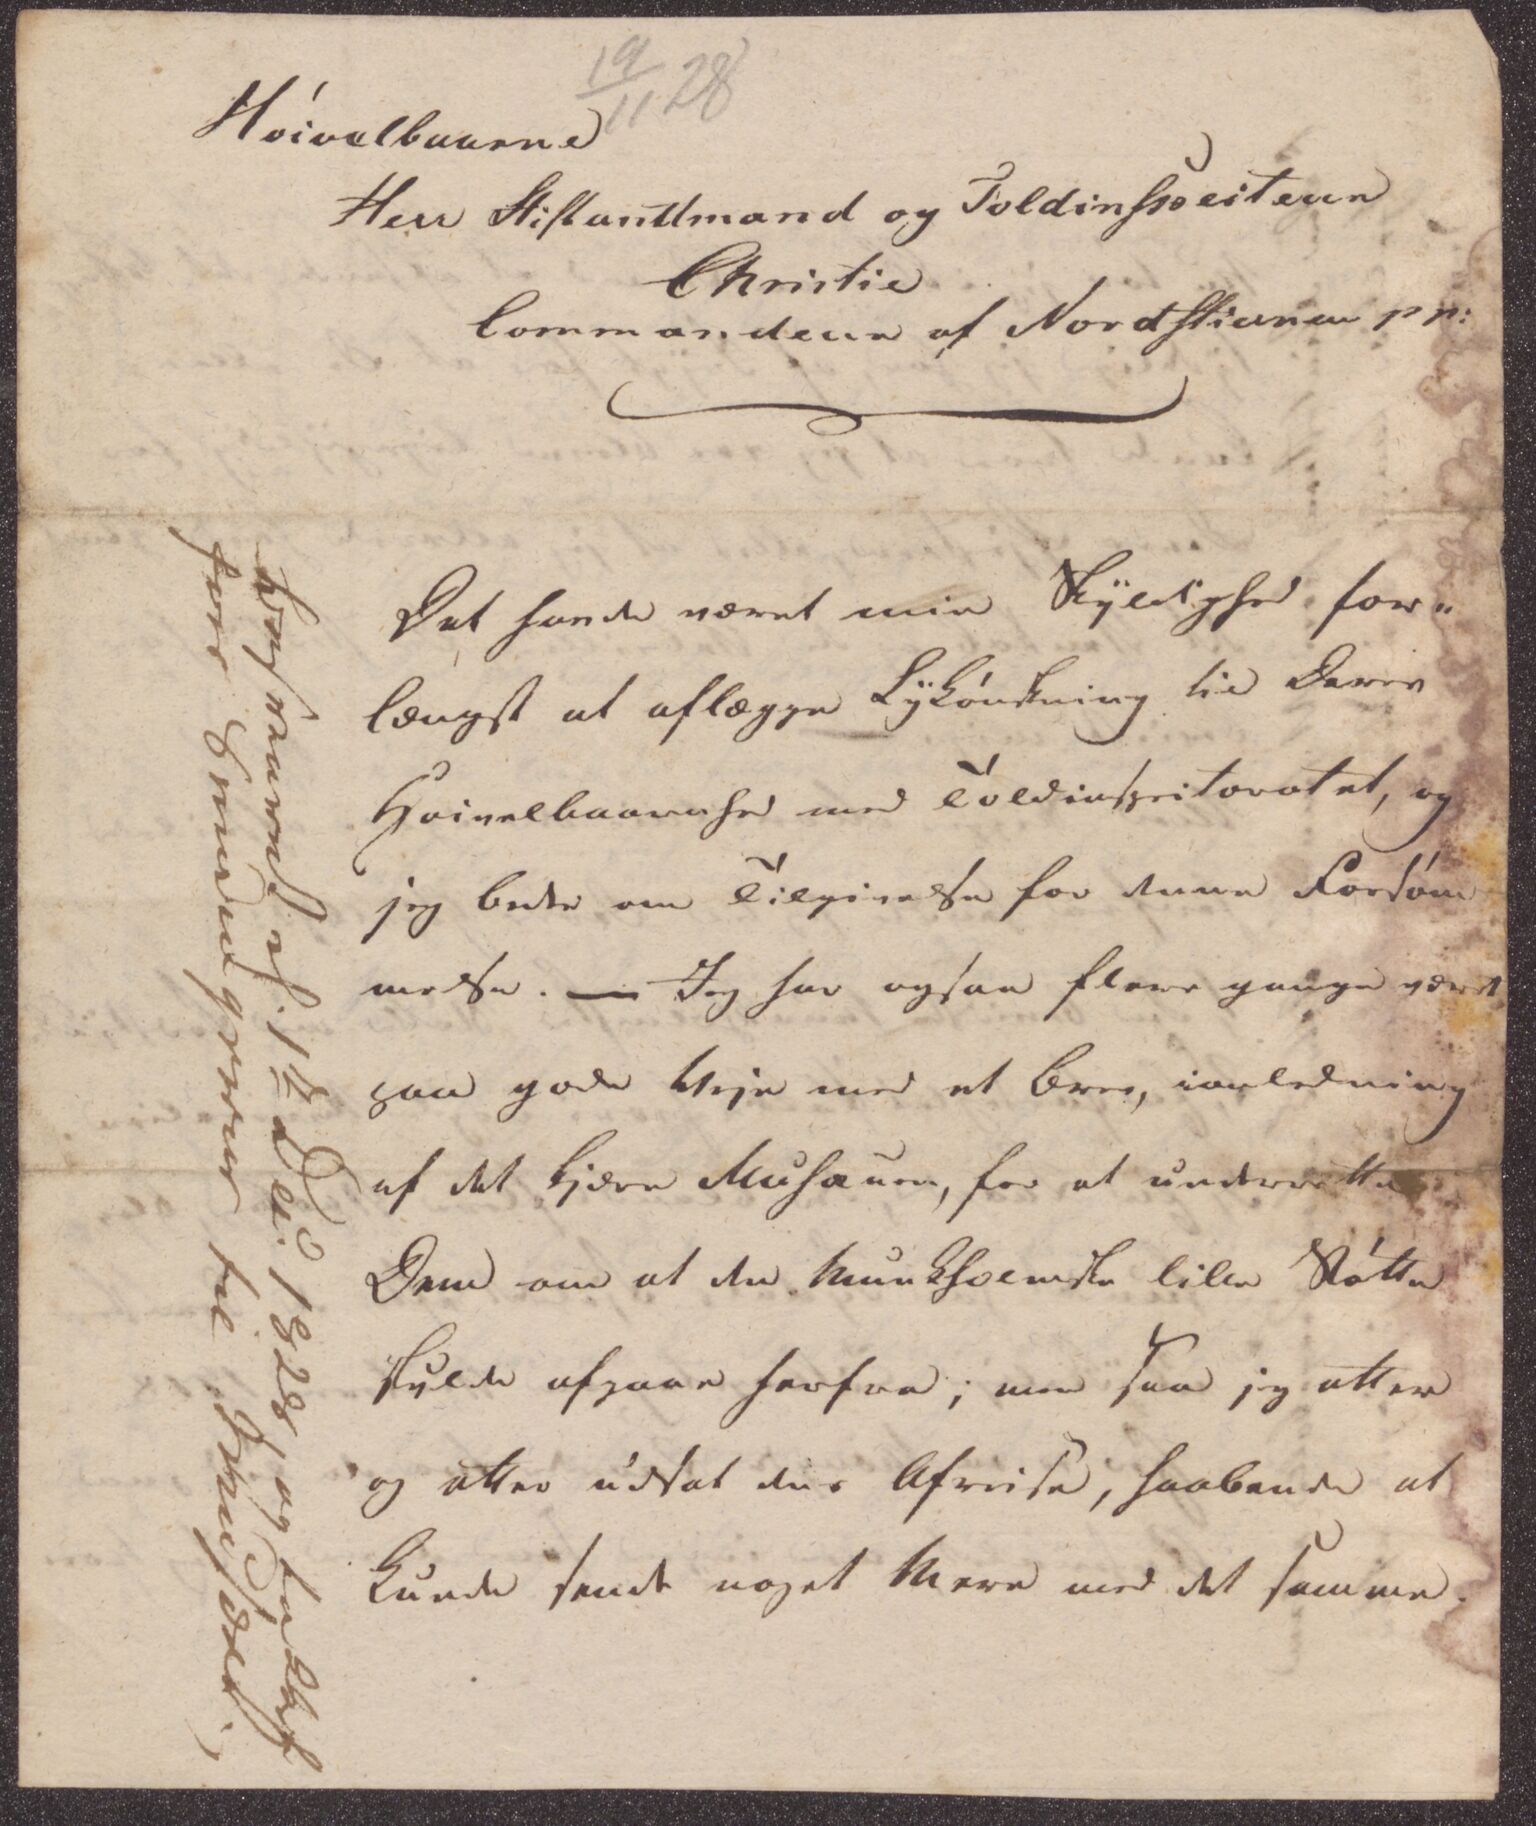 19/11 28
Höivelbaarne
Herr Stiftamtmand og Toldinspecteur
Christie
Commandeur af Nordstiernen pp:
Det havde været min Skÿldighed for„
længst at aflægge Lÿkónskning til Deres
Høivelbaarenhed med Toldinspectoratet, og
jeg beder om Tilgivelse for denne Forsóm
melse. — Jeg har ogsaa flere gange været
paa gode Veje med et Brev, i anledning
af det kjære Musæum, for at underrette
Dem om at den Munkholmske lille Stótte
skulde afgaae herfra; men saa jeg atter
og atter udsat dens Afreise, haabende at
kunde sende noget Mere med det samme.
Besvaret d. 1ste Dec. 1828, og takket
for til Musæet.